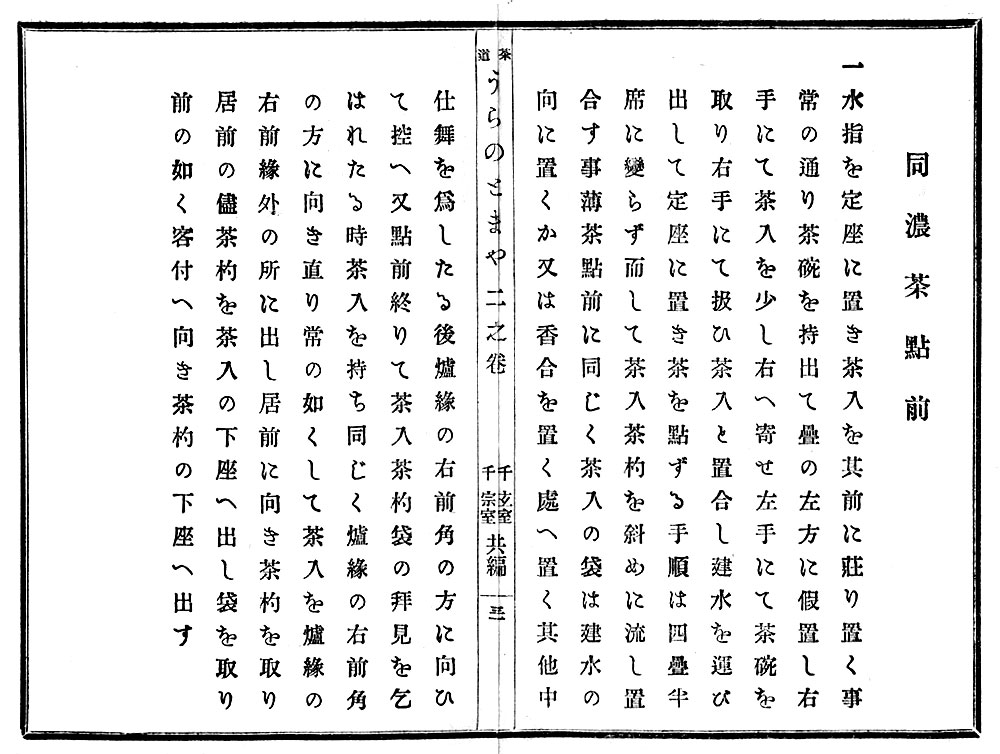 同濃茶點前
一水指を定座に置き茶入を其前に莊り置く事
常の通り茶碗を持出て疊の左方に假置し右
手にて茶入を少し右へ寄せ左手にて茶碗を
取り右手にて扱ひ茶入と置合し建水を運び
出して定座に置き茶を點ずる手順は四疊半
席に變らず而して茶入茶杓を斜めに流し置
合す事薄茶點前に同じく茶入の袋は建水の
向に置くか又は香合を置く處へ置く其他中
茶道うらのとまや 二之卷
千玄室
千宗室
共編
三
仕舞を爲したる後爐緣の右前角の方に向ひ
て控へ又點前終りて茶入茶杓袋の拜見を乞
はれたる時茶入を持ち同じく爐緣の右前角
の方に向き直り常の如くして茶入を爐緣の
右前緣外の所に出し居前に向き茶杓を取り
居前の儘茶杓を茶入の下座へ出し袋を取り
前の如く客付へ向き茶杓の下座へ出す